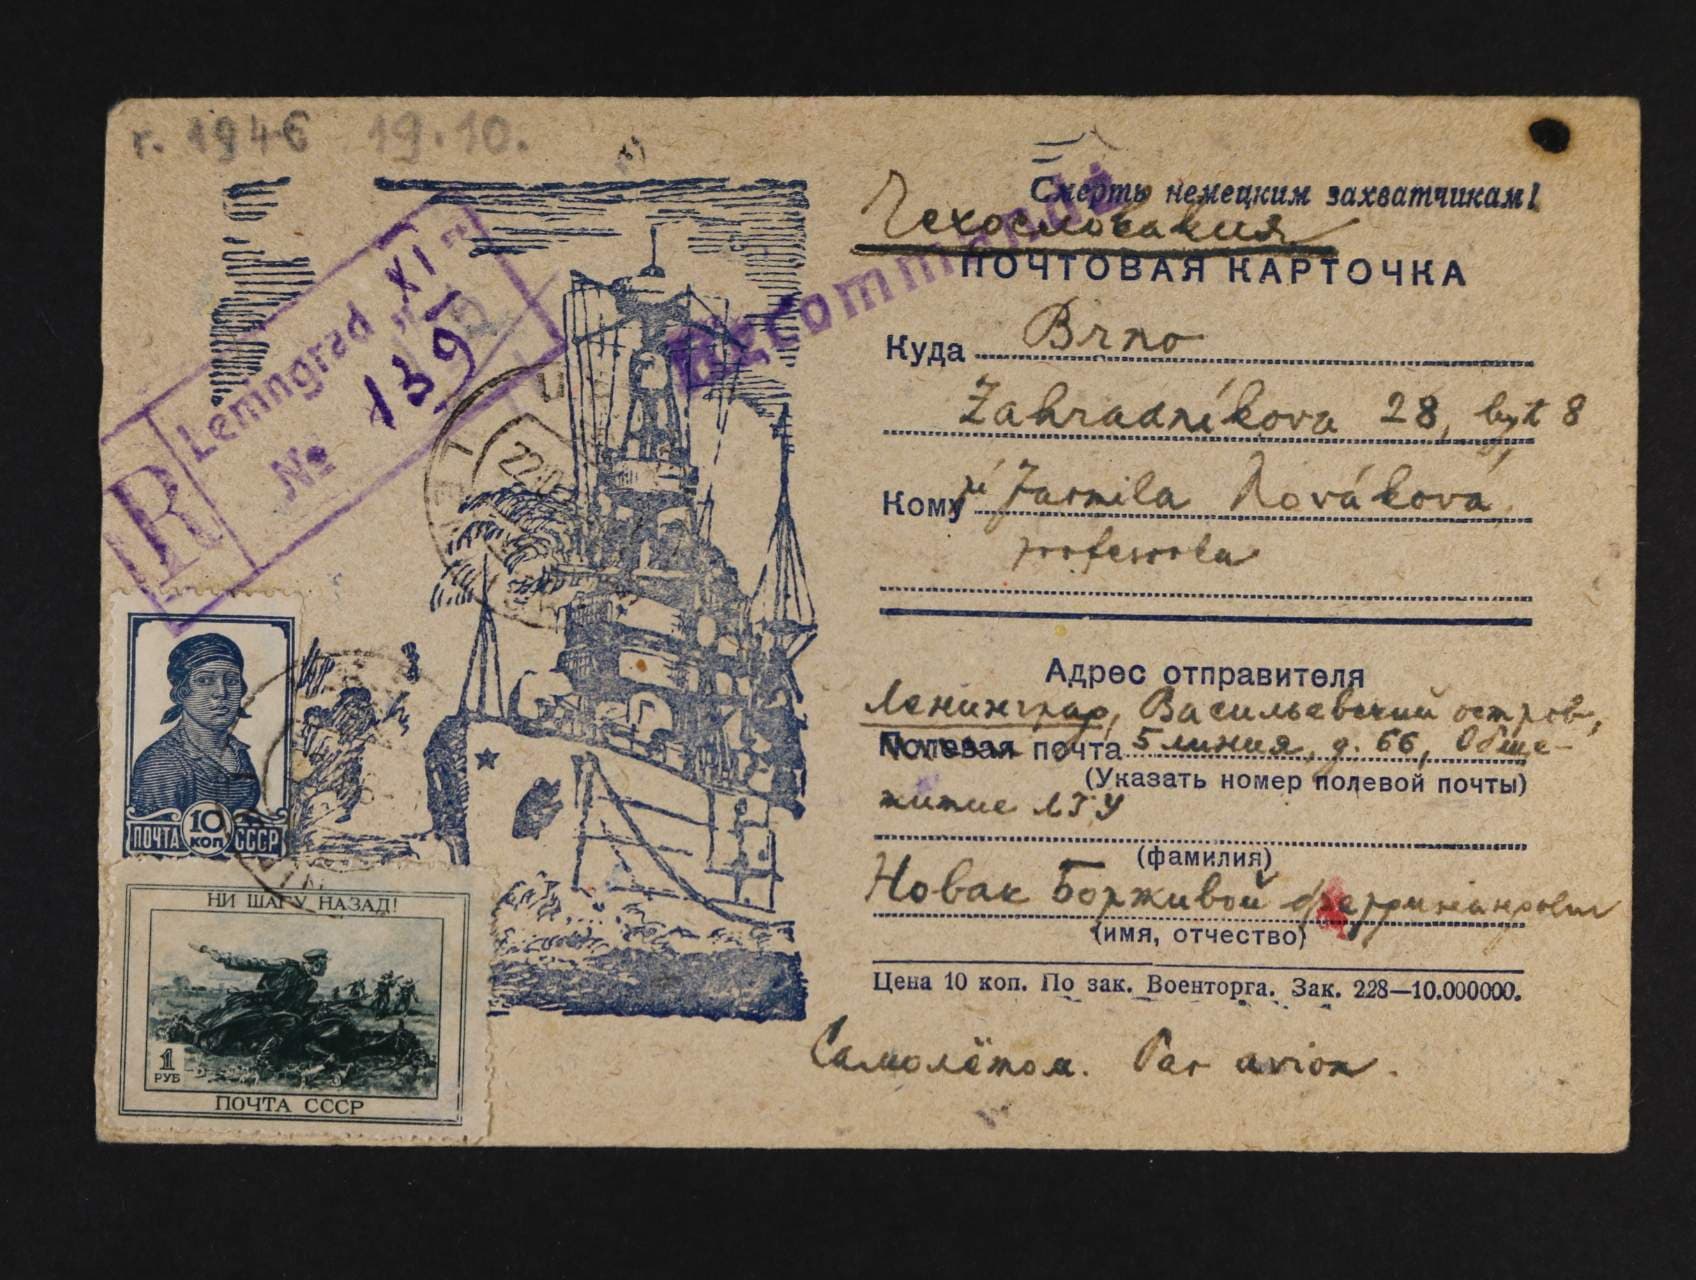 г. 1946 19.10.
Смерть немецким захватчикам!
Чехословакия
ПОЧТОВАЯ КАРТОЧКА
Recommandé
R
Leningrad „XI"
№ 139
Куда Brno
Zahradníkova 28, byt 8
Кому Jarmila Nováková,
profesorka
Адрес отправителя
Ленинград, Васильевский остров,
Полевая почта 5 линия, д. 66, Обще-
(Указать номер полевой почты)
житие ЛГУ
(фамилия)
Новак Борживой Фердинандович
(имя, отчество)
Цена 10 коп. По зак. Военторга. Зак. 228—10.000000.
Самолётом. Par avion.
ПОЧТА 10 КОП СССР
НИ ШАГУ НАЗАД!
1
РУБ
ПОЧТА СССР